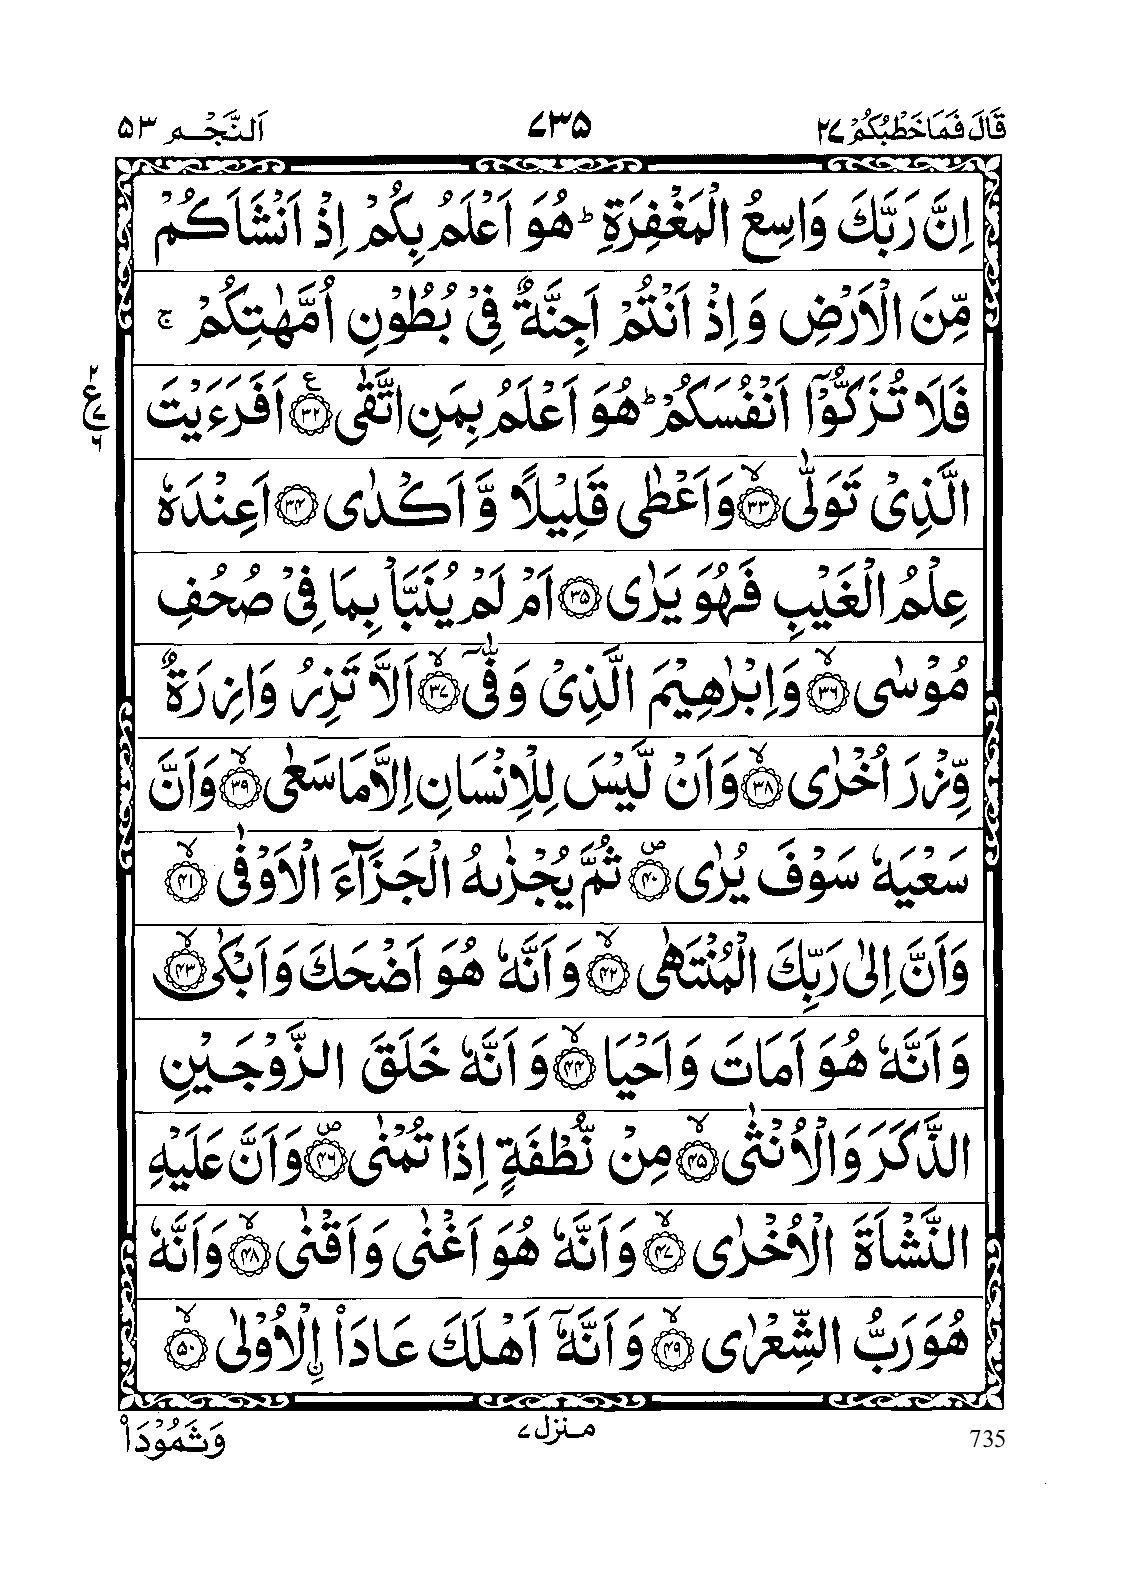 قَالَ فَمَا خَطْبُكُمْ ٢٧ ٧٣٥ اَلنَّجْم ٥٣
اِنَّ رَبَّكَ وَاسِعُ الْمَغْفِرَةِ ؕ هُوَ اَعْلَمُ بِكُمْ اِذْ اَنْشَاَكُمْ
مِّنَ الْاَرْضِ وَ اِذْ اَنْتُمْ اَجِنَّةٌ فِيْ بُطُوْنِ اُمَّهٰتِكُمْ ۚ
فَلَا تُزَكُّوْۤا اَنْفُسَكُمْ ؕ هُوَ اَعْلَمُ بِمَنِ اتَّقٰى ﴿۳۲﴾ ع اَفَرَءَيْتَ
ع ٢ ٧ ٦
الَّذِيْ تَوَلّٰى ﴿۳۳﴾ۙ وَاَعْطٰى قَلِيْلًا وَّ اَكْدٰى ﴿۳۴﴾ اَعِنْدَهٗ
عِلْمُ الْغَيْبِ فَهُوَ يَرٰى ﴿۳۵﴾ اَمْ لَمْ يُنَبَّاْ بِمَا فِيْ صُحُفِ
مُوْسٰى ﴿۳۶﴾ۙ وَاِبْرٰهِيْمَ الَّذِيْ وَفّٰۤى ﴿۳۷﴾ۙ اَلَّا تَزِرُ وَازِرَةٌ
وِّزْرَ اُخْرٰى ﴿۳۸﴾ۙ وَاَنْ لَّيْسَ لِلْاِنْسَانِ اِلَّا مَا سَعٰى ﴿۳۹﴾ۙ وَاَنَّ
سَعْيَهٗ سَوْفَ يُرٰى ﴿۴۰﴾۪ ثُمَّ يُجْزٰىهُ الْجَزَآءَ الْاَوْفٰى ﴿۴۱﴾ۙ
وَاَنَّ اِلٰى رَبِّكَ الْمُنْتَهٰى ﴿۴۲﴾ۙ وَاَنَّهٗ هُوَ اَضْحَكَ وَاَبْكٰى ﴿۴۳﴾ۙ
وَاَنَّهٗ هُوَ اَمَاتَ وَاَحْيَا ﴿۴۴﴾ۙ وَاَنَّهٗ خَلَقَ الزَّوْجَيْنِ
الذَّكَرَ وَالْاُنْثٰى ﴿۴۵﴾ۙ مِنْ نُّطْفَةٍ اِذَا تُمْنٰى ﴿۴۶﴾۪ وَاَنَّ عَلَيْهِ
النَّشْاَةَ الْاُخْرٰى ﴿۴۷﴾ۙ وَاَنَّهٗ هُوَ اَغْنٰى وَاَقْنٰى ﴿۴۸﴾ۙ وَاَنَّهٗ
هُوَ رَبُّ الشِّعْرٰى ﴿۴۹﴾ۙ وَاَنَّهٗۤ اَهْلَكَ عَادَاۨ الْاُوْلٰى ﴿۵۰﴾ۙ
وَثَمُوْدَا۟ منزل ٧ 735